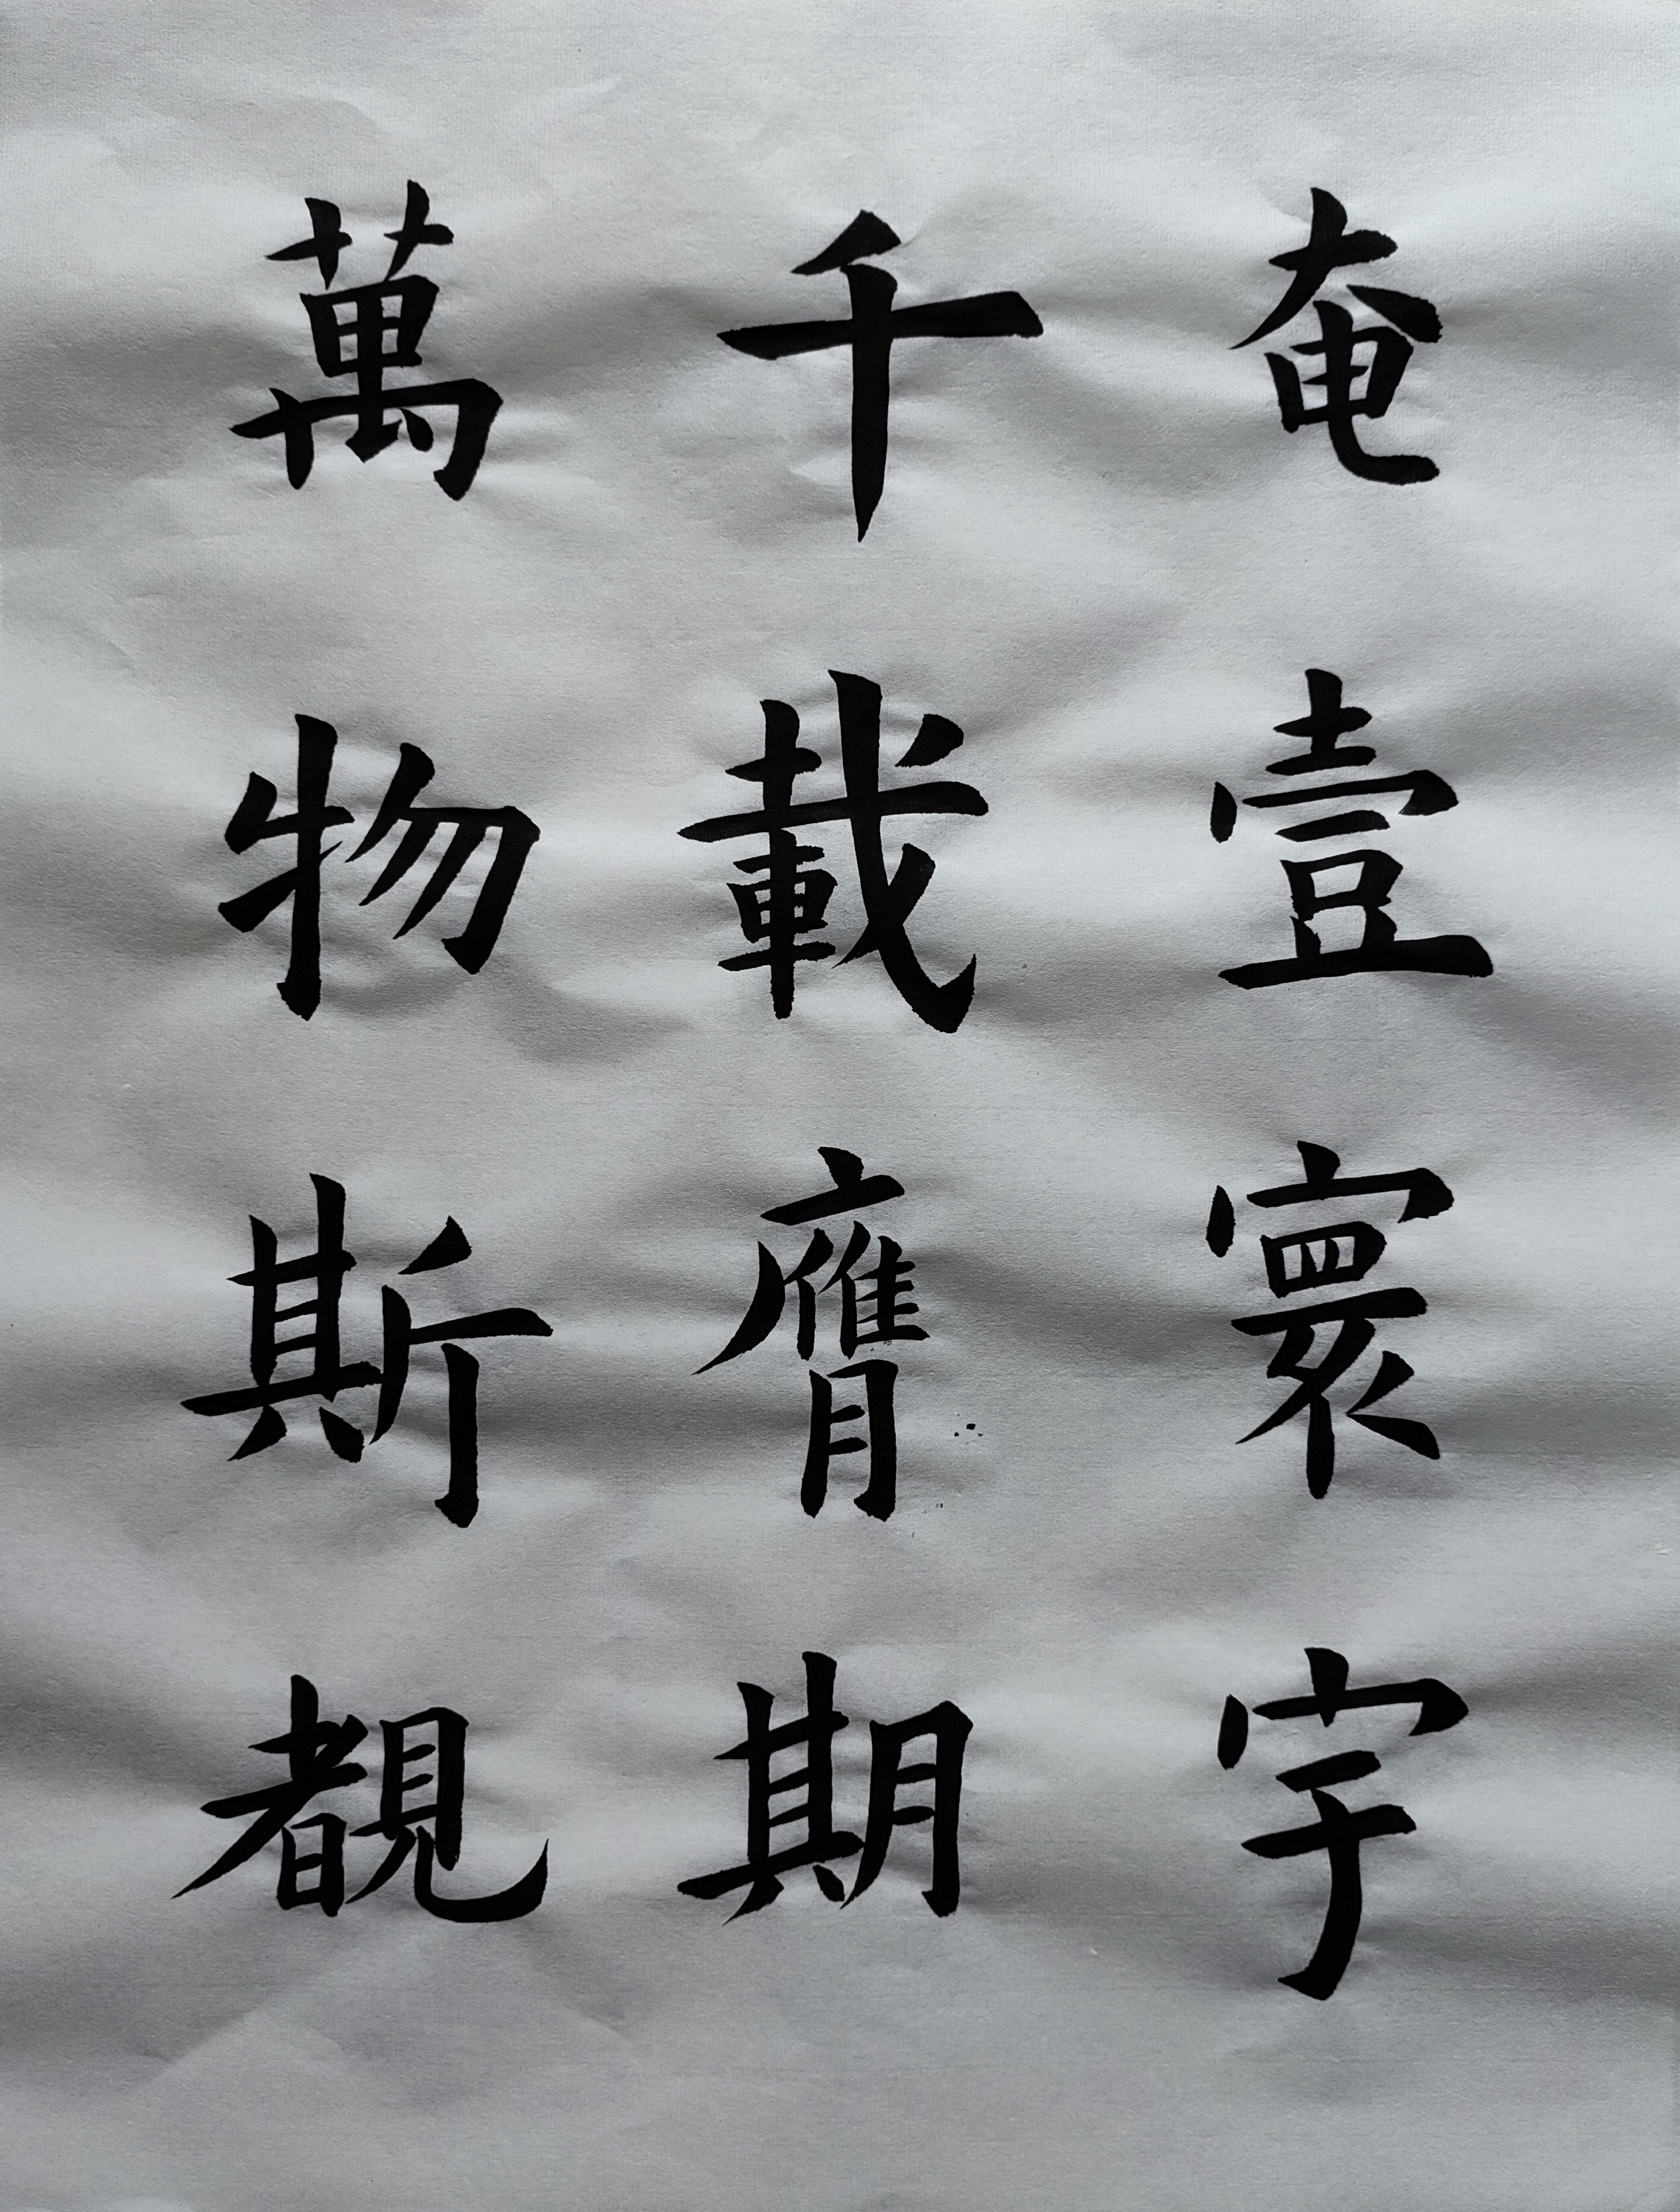 奄壹寰宇
千載膺期
萬物斯覩